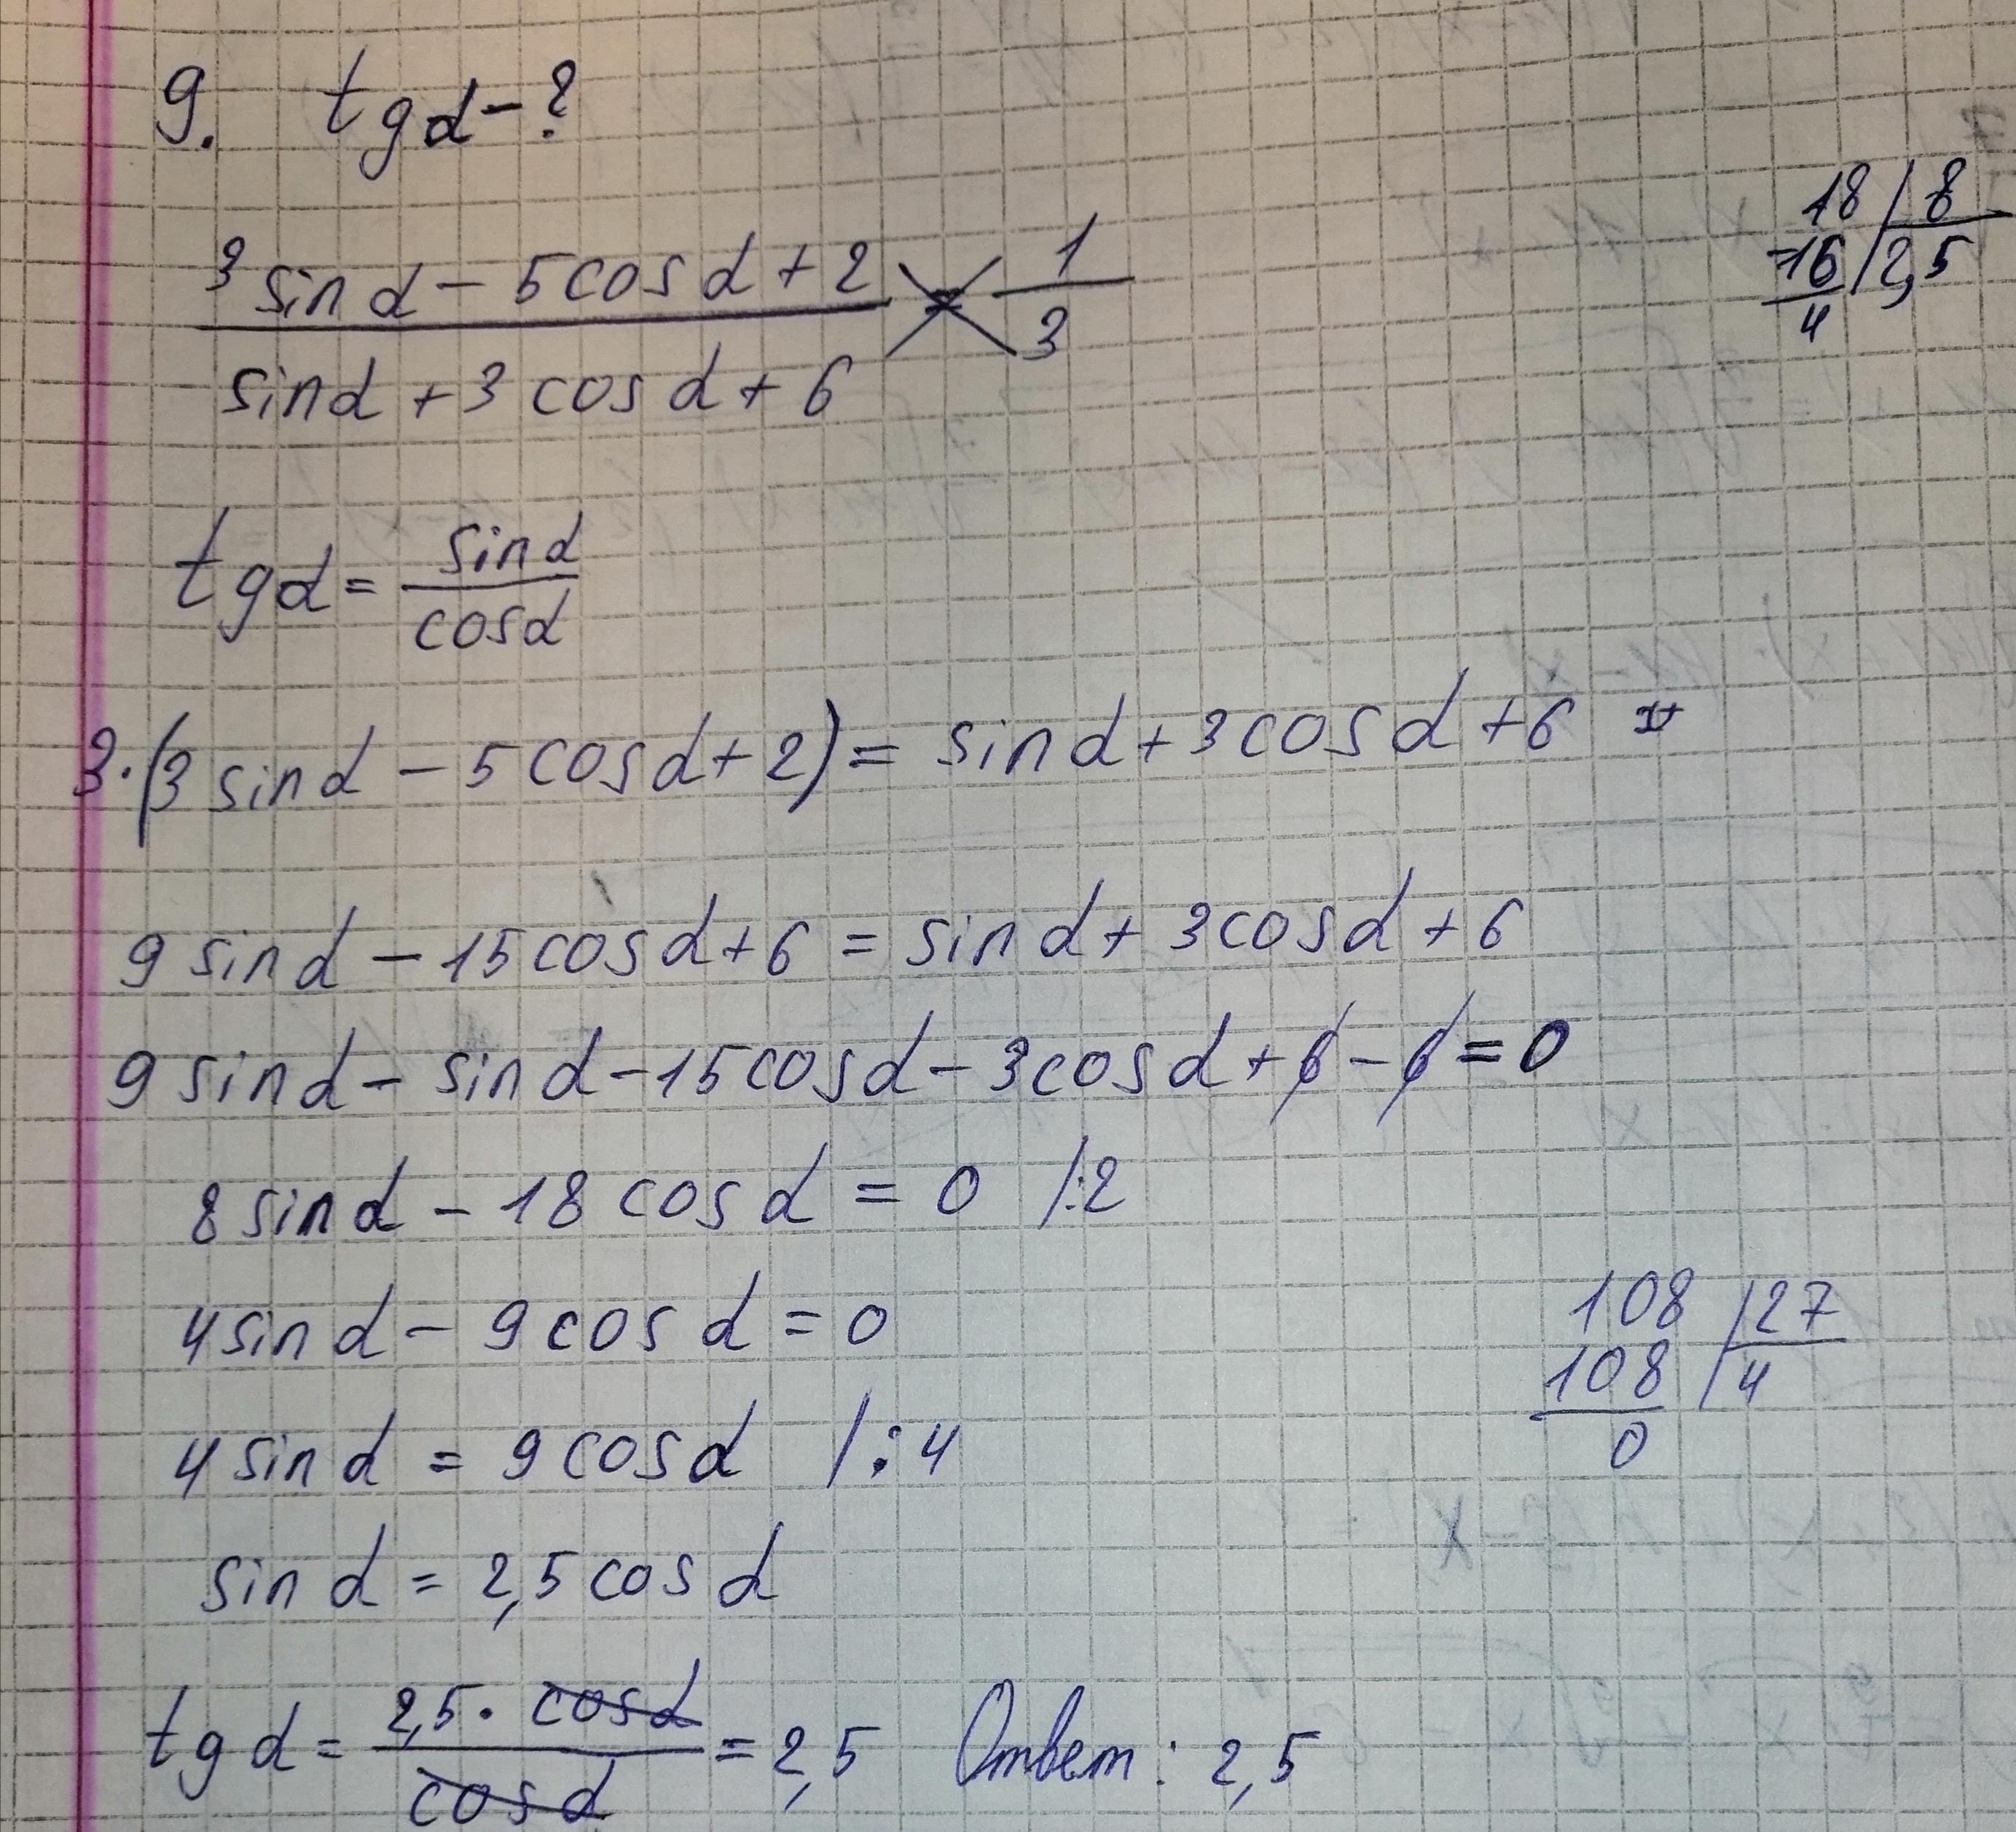 9. tg α - ?
3 sin α - 5 cos α + 2 / sin α + 3 cos α + 6 = 1 / 3
18 | 8
-16 | 2,5
4
tg α = sin α / cos α
3·(3 sin α - 5 cos α + 2) = sin α + 3 cos α + 6
9 sin α - 15 cos α + 6 = sin α + 3 cos α + 6
9 sin α - sin α - 15 cos α - 3 cos α + 6 - 6 = 0
8 sin α - 18 cos α = 0 /:2
4 sin α - 9 cos α = 0
108 | 27
108 | 4
0
4 sin α = 9 cos α /:4
sin α = 2,5 cos α
tg α = 2,5 · cos α / cos α = 2,5 Ответ: 2,5